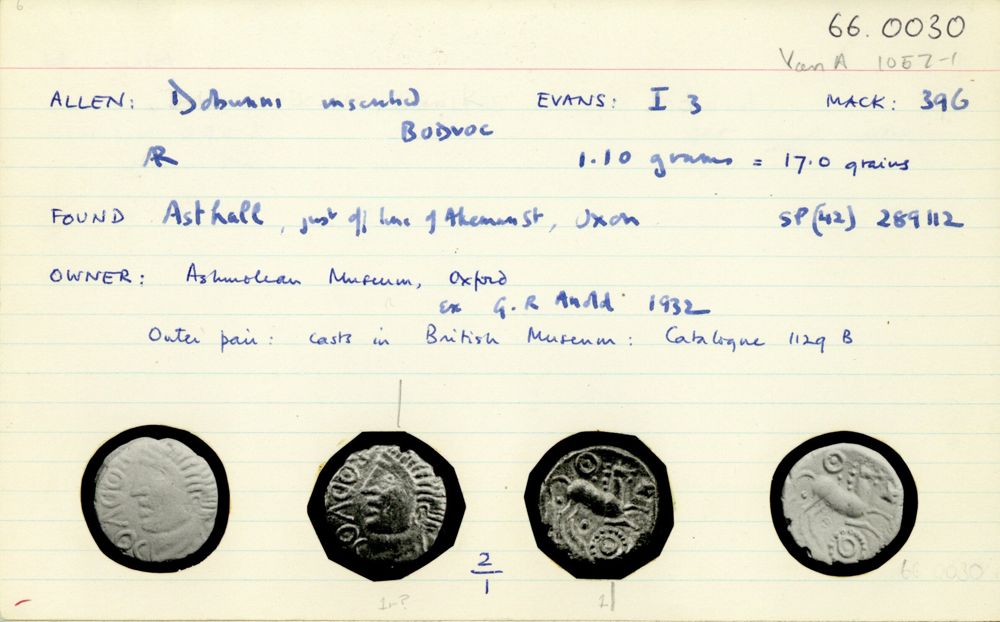 6
66.0030
Van A 1057-1
ALLEN: Dobunni inscribed EVANS: I 3 MACK: 396
BODVOC
AR 1.10 grams = 17.0 grains
FOUND Asthall, just off line of Akeman St, Oxon SP(42) 289112
OWNER: Ashmolean Museum, Oxford
ex G.R Arnold 1932
Outer pair: casts in British Museum: Catalogue 1129 B
BODVOC
BODVOC
2
1
66.0030
1r?
1